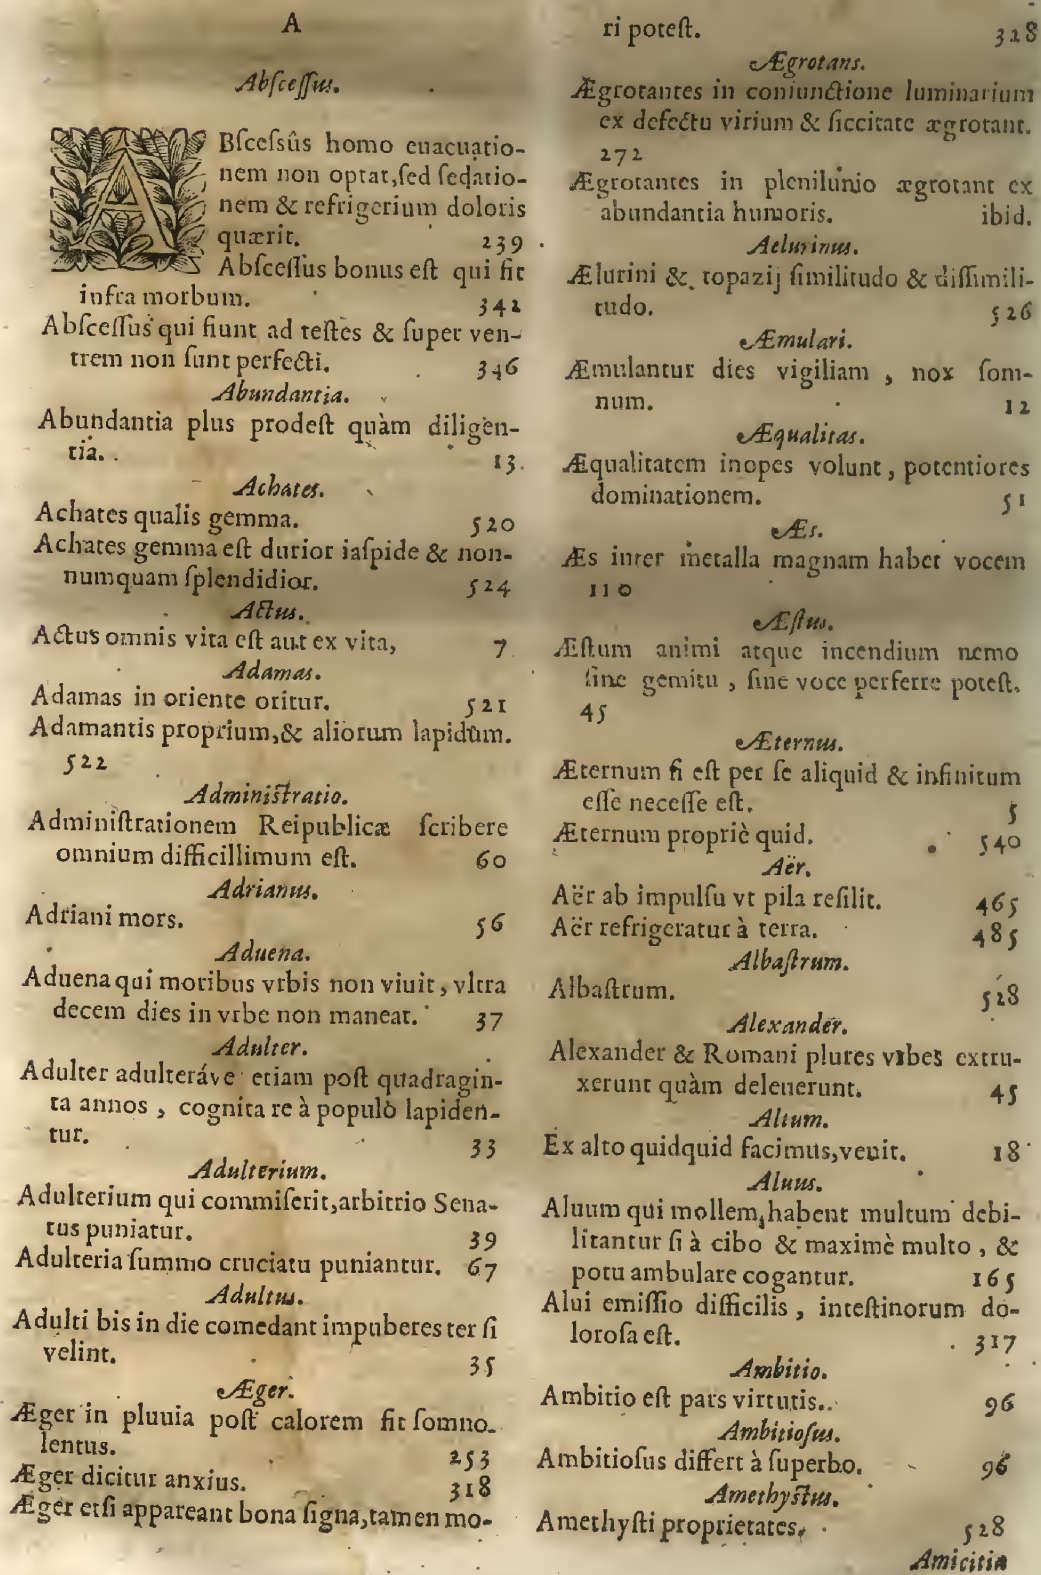 A
Abſceſſus.
ABſceſsûs homo euacuatio-
nem non optat, ſed ſedatio-
nem & refrigerium doloris
quærit. 239
Abſceſſus bonus eſt qui fit
infra morbum. 342
Abſceſſus qui fiunt ad teſtes & ſuper ven-
trem non ſunt perfecti. 346
Abundantia.
Abundantia plus prodeſt quàm diligen-
tia. 13.
Achates.
Achates qualis gemma. 520
Achates gemma eſt durior iaſpide & non-
numquam ſplendidior. 524
Actus.
Actus omnis vita eſt aut ex vita, 7
Adamas.
Adamas in oriente oritur. 521
Adamantis proprium, & aliorum lapidum.
522
Adminiſtratio.
Adminiſtrationem Reipublicæ ſcribere
omnium difficillimum eſt. 60
Adrianus.
Adriani mors. 56
Aduena.
Aduena qui moribus vrbis non viuit, vltra
decem dies in vrbe non maneat. 37
Adulter.
Adulter adulteráve etiam poſt quadragin-
ta annos, cognita re à populo lapiden-
tur. 33
Adulterium.
Adulterium qui commiſerit, arbitrio Sena-
tus puniatur. 39
Adulteria ſummo cruciatu puniantur. 67
Adultus.
Adulti bis in die comedant impuberes ter ſi
velint. 35
Æger.
Æger in pluuia poſt calorem fit ſomno-
lentus. 253
Æger dicitur anxius. 318
Æger etſi appareant bona ſigna, tamen mo-
ri poteſt. 328
Ægrotans.
Ægrotantes in coniunctione luminarium
ex defectu virium & ſiccitate ægrotant.
272
Ægrotantes in plenilunio ægrotant ex
abundantia humoris. ibid.
Aelurinus.
Ælurini & topazij ſimilitudo & diſſimili-
tudo. 526
Æmulari.
Æmulantur dies vigiliam, nox ſom-
num. 12
Æqualitas.
Æqualitatem inopes volunt, potentiores
dominationem. 51
Æs.
Æs inter metalla magnam habet vocem
110
Æſtus.
Æſtum animi atque incendium nemo
ſine gemitu, ſine voce perferre poteſt.
45
Æternus.
Æternum ſi eſt per ſe aliquid & infinitum
eſſe neceſſe eſt. 5
Æternum propriè quid. 540
Aër.
Aër ab impulſu vt pila reſilit. 465
Aër refrigeratur à terra. 485
Albaſtrum.
Albaſtrum. 528
Alexander.
Alexander & Romani plures vrbes extru-
xerunt quàm deleuerunt. 45
Altum.
Ex alto quidquid facimus, venit. 18
Aluus.
Aluum qui mollem, habent multum debi-
litantur ſi à cibo & maximè multo, &
potu ambulare cogantur. 165
Alui emiſſio difficilis, inteſtinorum do-
loroſa eſt. 317
Ambitio.
Ambitio eſt pars virtutis. 96
Ambitioſus.
Ambitioſus differt à ſuperbo. 96
Amethyſtus.
Amethyſti proprietates. 528
Amicitia